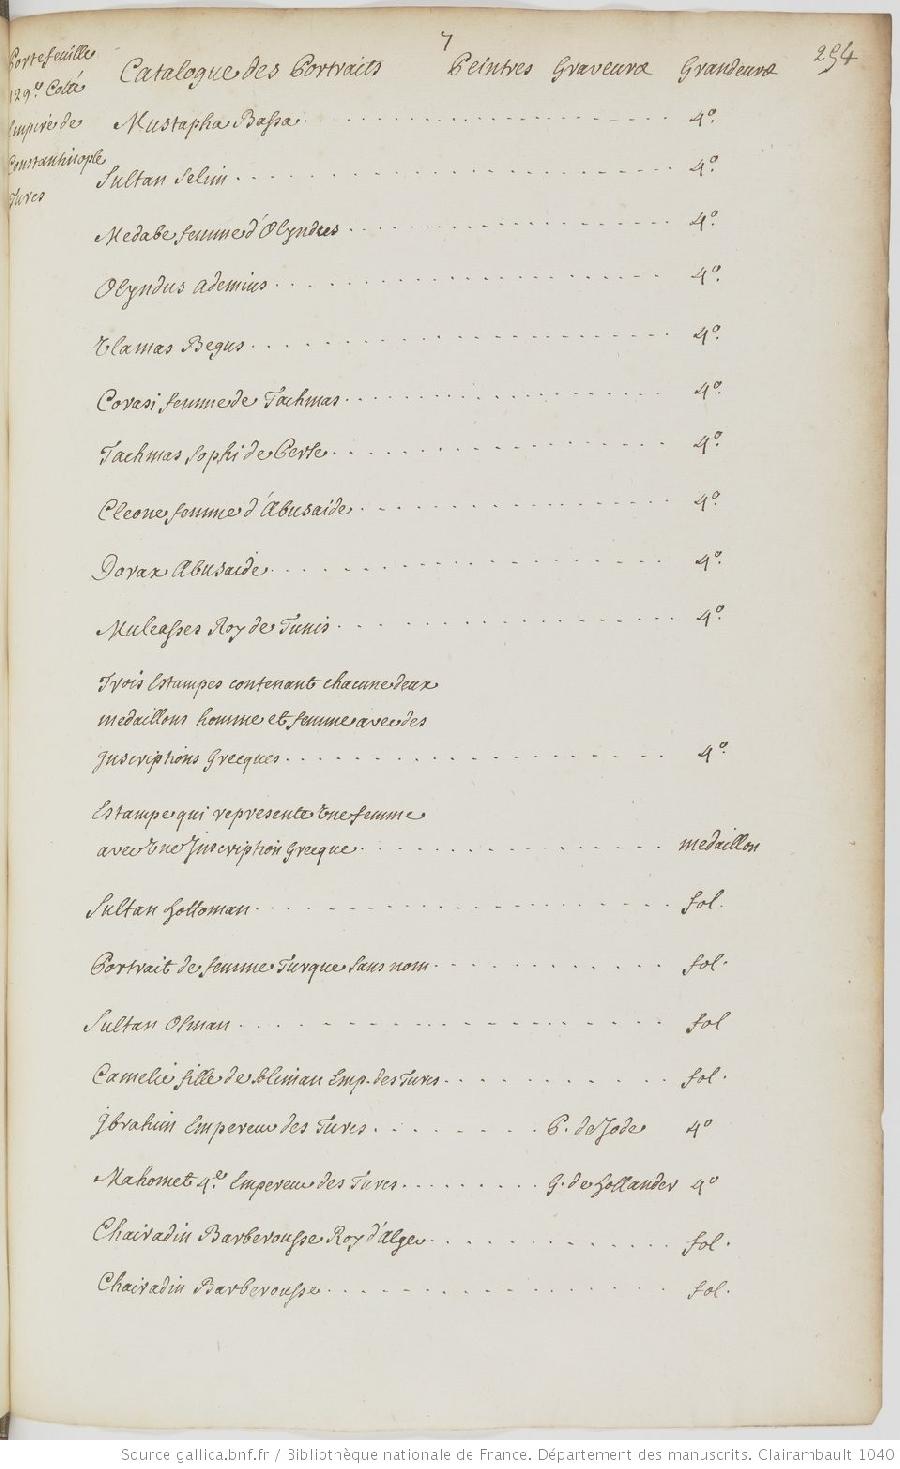 7
254
Portefeuille
129e. Cotté
Empire de
Constantinople
Turcs
Catalogue des Portraits Peintres Graveurs Grandeurs
Mustapha Bassa 4o.
Sultan Selim 4o.
Medabe femme d'Olyndus 4o.
Olyndus ademius 4o.
Ulamas Begus 4o.
Corasi femme de Tachmas 4o.
Tachmas sophi de Perse 4o.
Cleone femme d'Abusaide 4o.
Dorax Abusaide 4o.
Muleasses Roy de Tunis 4o.
Trois Estampes contenant chacune deux
medaillons homme et femme avec des
Inscriptions Grecques 4o.
Estampe qui represente Une femme
avec Une Inscription Grecque medaillon
Sultan Hottoman fol.
Portrait de femme Turque sans nom fol.
Sultan Osman fol
Camelie fille de soliman Emp. des Turcs fol.
Ibrahim Empereur des Turcs P. de Jode 4o
Mahomet 4e. Empereur des Turcs G. de Hollander 4o
Chairadin Barberousse Roy d'alger fol.
Chairadin Barberousse fol.
Source gallica.bnf.fr / Bibliothèque nationale de France. Département des manuscrits. Clairambault 1040